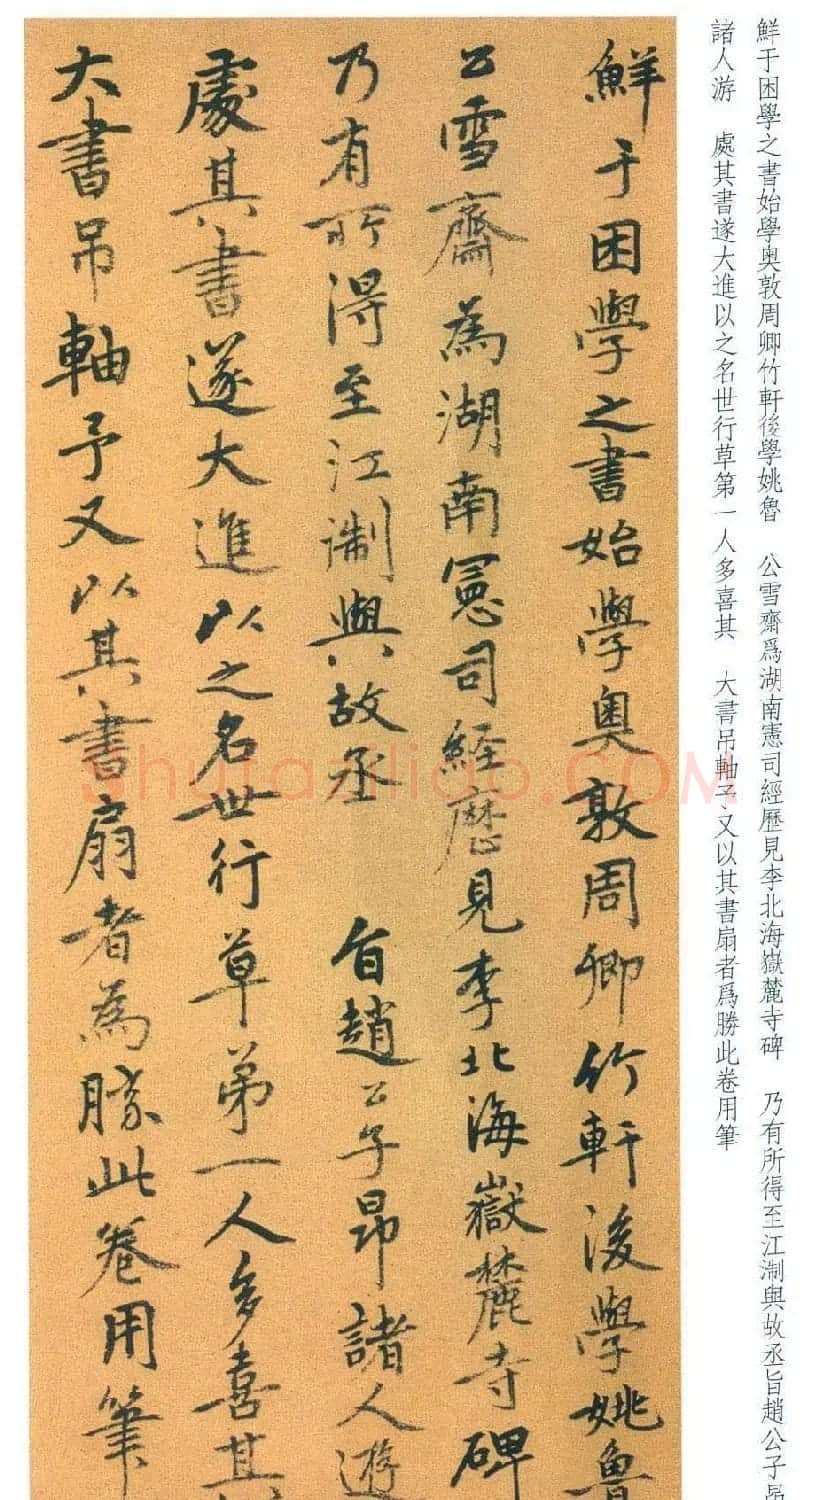 鮮于困學之書始學奧敦周卿竹軒後學姚魯　公雪齋爲湖南憲司經歷見李北海嶽麓寺碑　乃有所得至江淛與故丞旨趙公子昂
諸人游　處其書遂大進以之名世行草第一人多喜其　大書吊軸予又以其書扇者爲勝此卷用筆
鮮于困學之書始學奧敦周卿竹軒後學姚魯
公雪齋為湖南憲司經歷見李北海嶽麓寺碑
乃有所得至江淛與故丞　旨趙公子昂諸人遊
處其書遂大進以之名世行草第一人多喜其
大書吊軸予又以其書扇者為勝此卷用筆
shufaziliao.COM